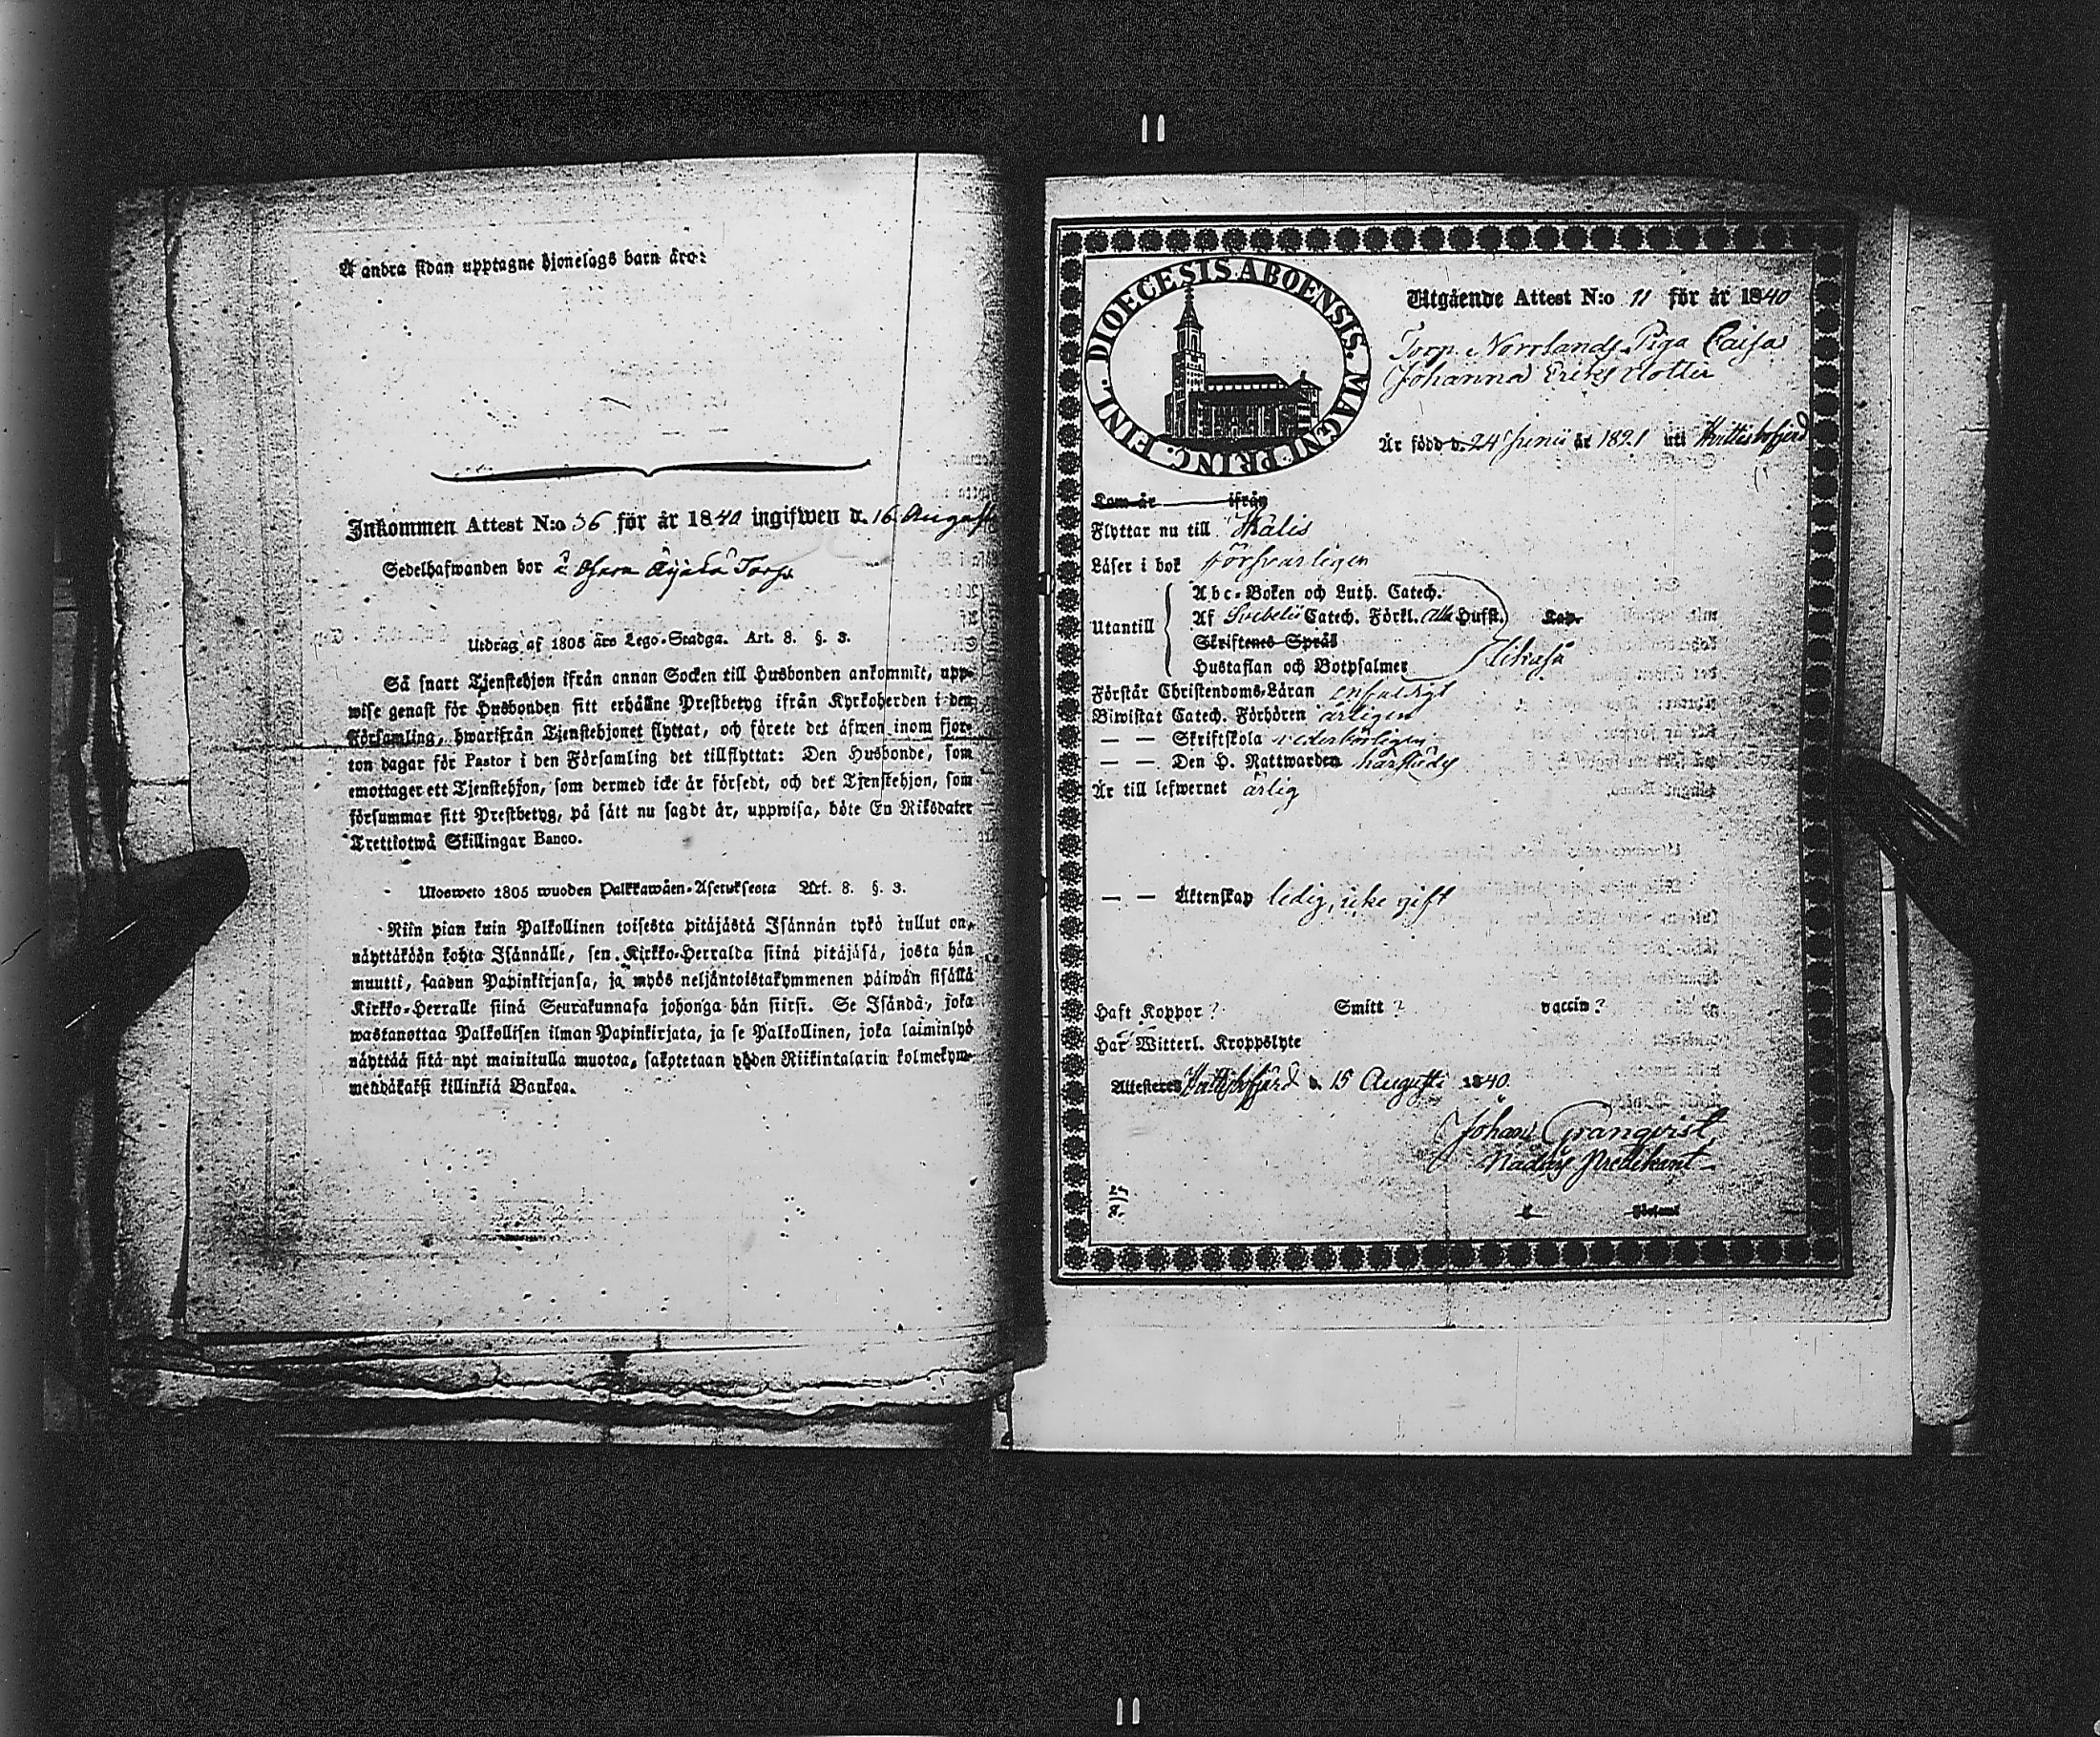 Å andra sidan upptagne hjonelags barn äro:
Inkommen Attest N:o 56 för år 1840 ingifwen d. 16 August
Sedelhafwanden bor å Torp
Utdrag af 1805 års Lego-Stadga. Art. 8. §. 3.
Så snart Tjenstehjon ifrån annan Socken till Husbonden ankommit, upp-
wise genast för Husbonden sitt erhållne Prestbetyg ifrån Kyrkoherden i den
Församling, hwarifrån Tjenstehjonet flyttat, och förete det äfwen inom fjor-
ton dagar för Pastor i den Församling det tillflyttat: Den Husbonde, som
emottager ett Tjenstehjon, som dermed icke är försedt, och det Tjenstehjon, som
försummar sitt Prestbetyg, på sätt nu sagdt är, uppwisa, böte En Riksdaler
Trettiotwå Skillingar Banco.
Ulosweto 1805 wuoden Palkkawäen-Asetuksesta Art. 8. §. 3.
Niin pian kuin Palkollinen toisesta pitäjästä Isännän tykö tullut on,
näyttäköön kohta Isännälle, sen Kirkko-Herralda siinä pitäjäsä, josta hän
muutti, saadun Papinkirjansa, ja myös neljäntoistakymmenen päiwän sisällä
Kirkko-Herralle siinä Seurakunnasa johonga hän siirsi. Se Isändä, joka
wastanottaa Palkollisen ilman Papinkirjata, ja se Palkollinen, joka laiminlyö
näyttää sitä nyt mainitulla muotoa, sakotetaan yhden Riikintalarin kolmekym-
mendäkaksi killinkiä Bankoa.
DIOECESIS ABOENSIS. MAGNI PRINC. FINL.
Utgående Attest N:o 11 för år 1840
Torp. Norrlands Piga Caisa
Johanna Ericsdotter
Är född d. 24 Junii år 1821 uti Hvittisbofjerd
Kom år ifrån
Flyttar nu till Kälis
Läser i bok försvarligen
Utantill
Abc-Boken och Luth. Catech.
Af Svebelii Catech. Förkl. alla Hufst. Kap.
Skriftenes Språk
Hustaflan och Botpsalmer likaså
Förstår Christendoms-Läran enfaldigt
Biwistat Catech. Förhören årligen
— — Skriftskola vederbörligen
— — Den H. Nattwarden härstädes
Är till lefwernet ärlig
— — Äktenskap ledig, icke gift
Haft Koppor ? Smitt ? vaccin ?
Har Witterl. Kroppslyte
Attesteres Hvittisbofjärd d. 15 Augusti 1840.
Johan Granqvist,
Nådårs Predikant